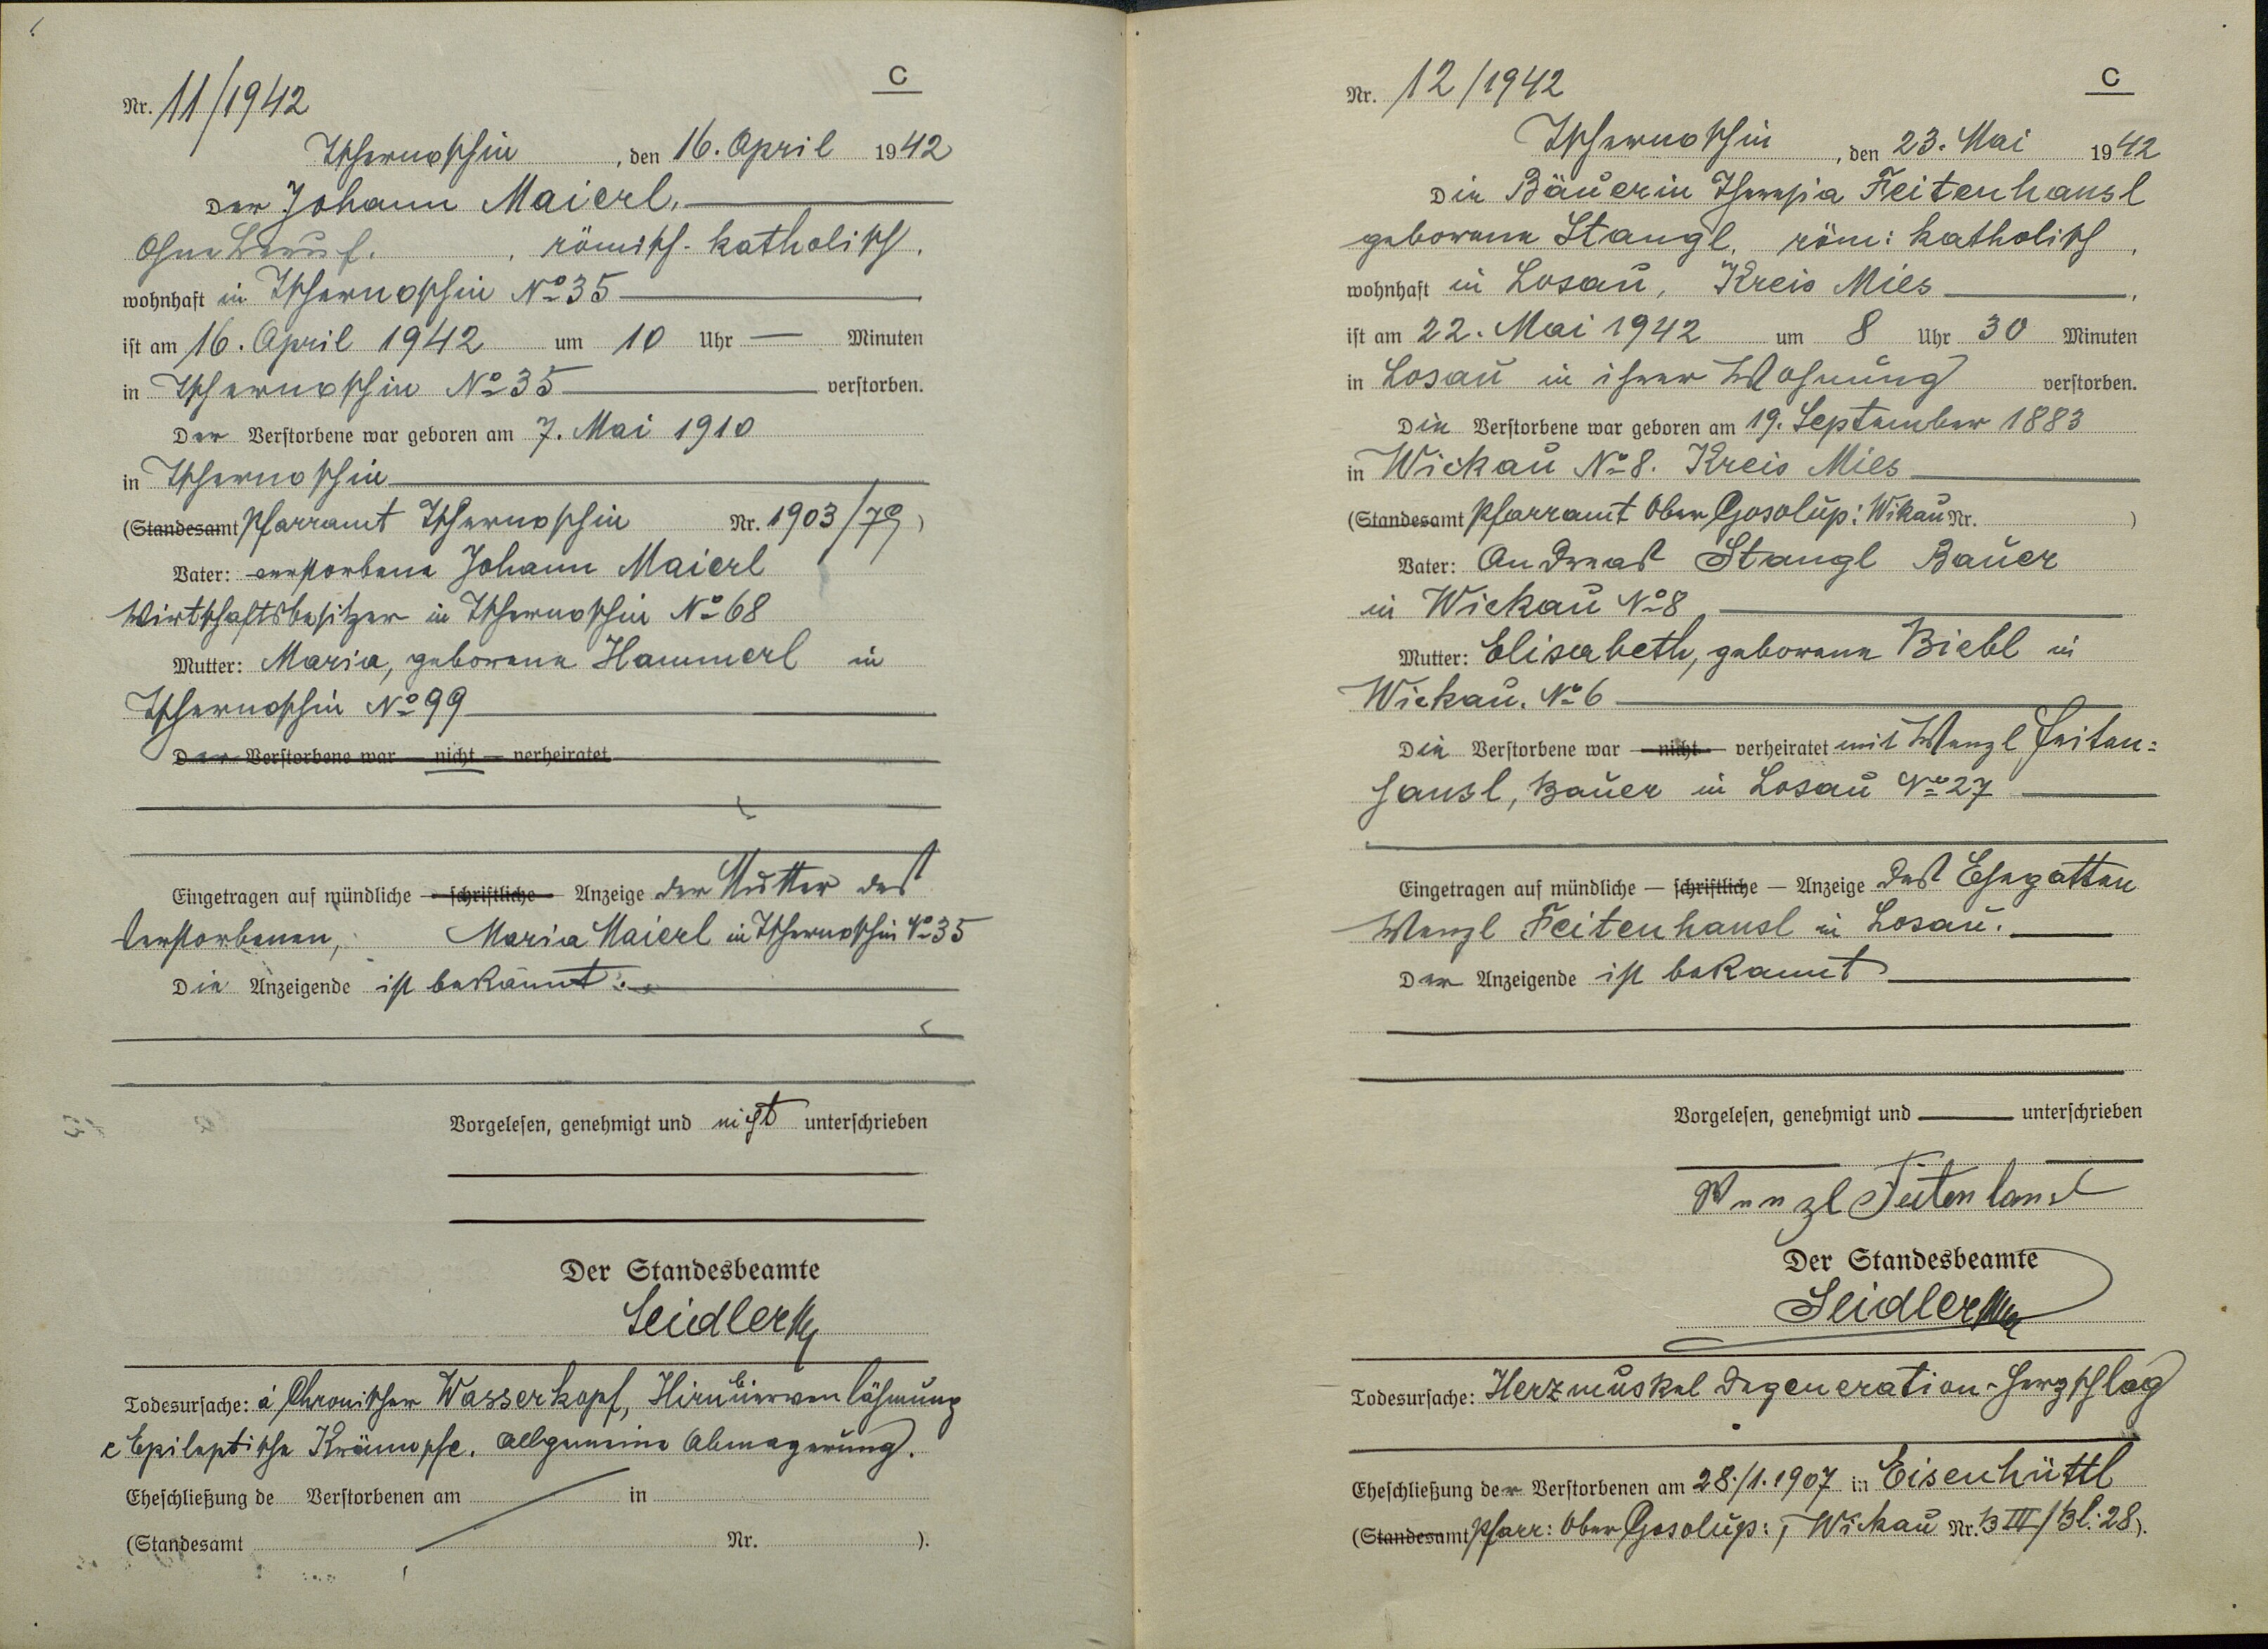 C
Nr. 11/1942
Tschernoschin, den 16. April 1942
Der Johann Maierl.
Ohne Beruf. , römisch-katholisch.
wohnhaft in Tschernoschin No 35
ist am 16. April 1942 um 10 Uhr — Minuten
in Tschernoschin No 35 verstorben.
Der Verstorbene war geboren am 7. Mai 1910
in Tschernoschin
(Standesamt Pfarramt Tschernoschin Nr. 1903/79)
Vater: verstorbene Johann Maierl
Wirtschaftsbesitzer in Tschernoschin No 68
Mutter: Maria, geborene Hammerl in
Tschernoschin No 99
Der Verstorbene war — nicht — verheiratet
Eingetragen auf mündliche — schriftliche — Anzeige der Mutter des
Verstorbenen, Maria Maierl in Tschernoschin No 35
Die Anzeigende ist bekannt.
Vorgelesen, genehmigt und nicht unterschrieben
Der Standesbeamte
Seidler
Todesursache: a Chronischer Wasserkopf, b Hirnnervenlähmung
c Epileptische Krämpfe. Allgemeine Abmagerung.
Eheschließung de Verstorbenen am in
(Standesamt Nr. ).
C
Nr. 12/1942
Tschernoschin, den 23. Mai 1942
Die Bäuerin Theresia Feitenhansl
geborene Stangl, röm: katholisch,
wohnhaft in Losau, Kreis Mies,
ist am 22. Mai 1942 um 8 Uhr 30 Minuten
in Losau in ihrer Wohnung verstorben.
Die Verstorbene war geboren am 19. September 1883
in Wickau No 8. Kreis Mies
(Standesamt Pfarramt Ober Gosolup: Wikau Nr. )
Vater: Andreas Stangl Bauer
in Wickau No 8
Mutter: Elisabeth, geborene Biebl in
Wickau. No 6
Die Verstorbene war — nicht — verheiratet mit Wenzl Feiten=
hansl, Bauer in Losau No 27
Eingetragen auf mündliche — schriftliche — Anzeige des Ehegatten
Wenzl Feitenhansl in Losau.
Der Anzeigende ist bekannt
Vorgelesen, genehmigt und — unterschrieben
Wenzl Feitenhansl
Der Standesbeamte
Seidler
Todesursache: Herzmuskel Degeneration - Herzschlag
Eheschließung der Verstorbenen am 28./1.1907 in Eisenhüttl
(Standesamt Pfarr: Ober Gosolup:, Wickau Nr. B III/Bl: 28).